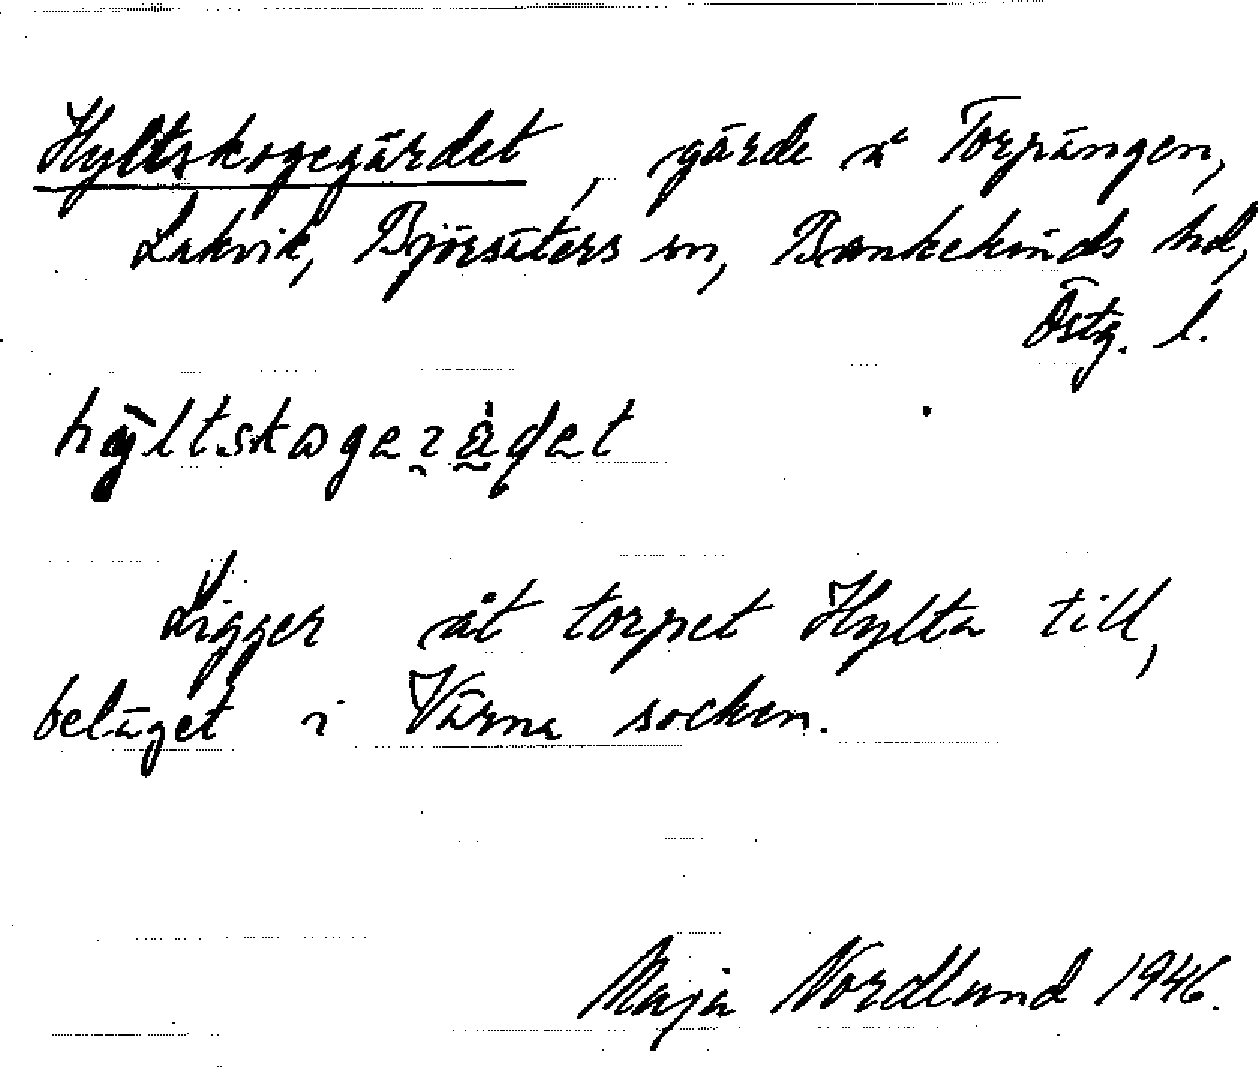 Hyltskogegärdet, gärde å Torpängen,
Lakvik, Björsäters sn, Bankekinds hd,
Östg. l.
Ligger åt torpet Hylta till,
beläget i Värna socken.
Maja Nordlund 1946.